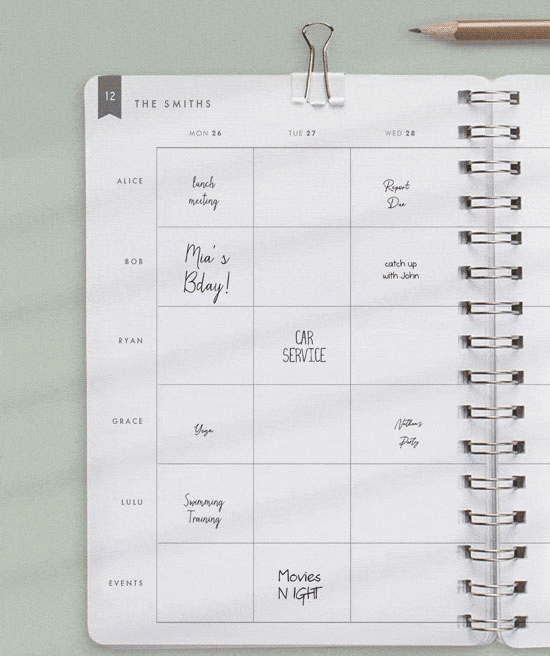 12
THE SMITHS
MON 26 TUE 27 WED 28
ALICE
lunch
meeting
Report
Due
BOB
Mia's
Bday!
catch up
with John
RYAN
CAR
SERVICE
GRACE
Yoga
Nathan's
Party
LULU
Swimming
Training
EVENTS
Movies
NIGHT